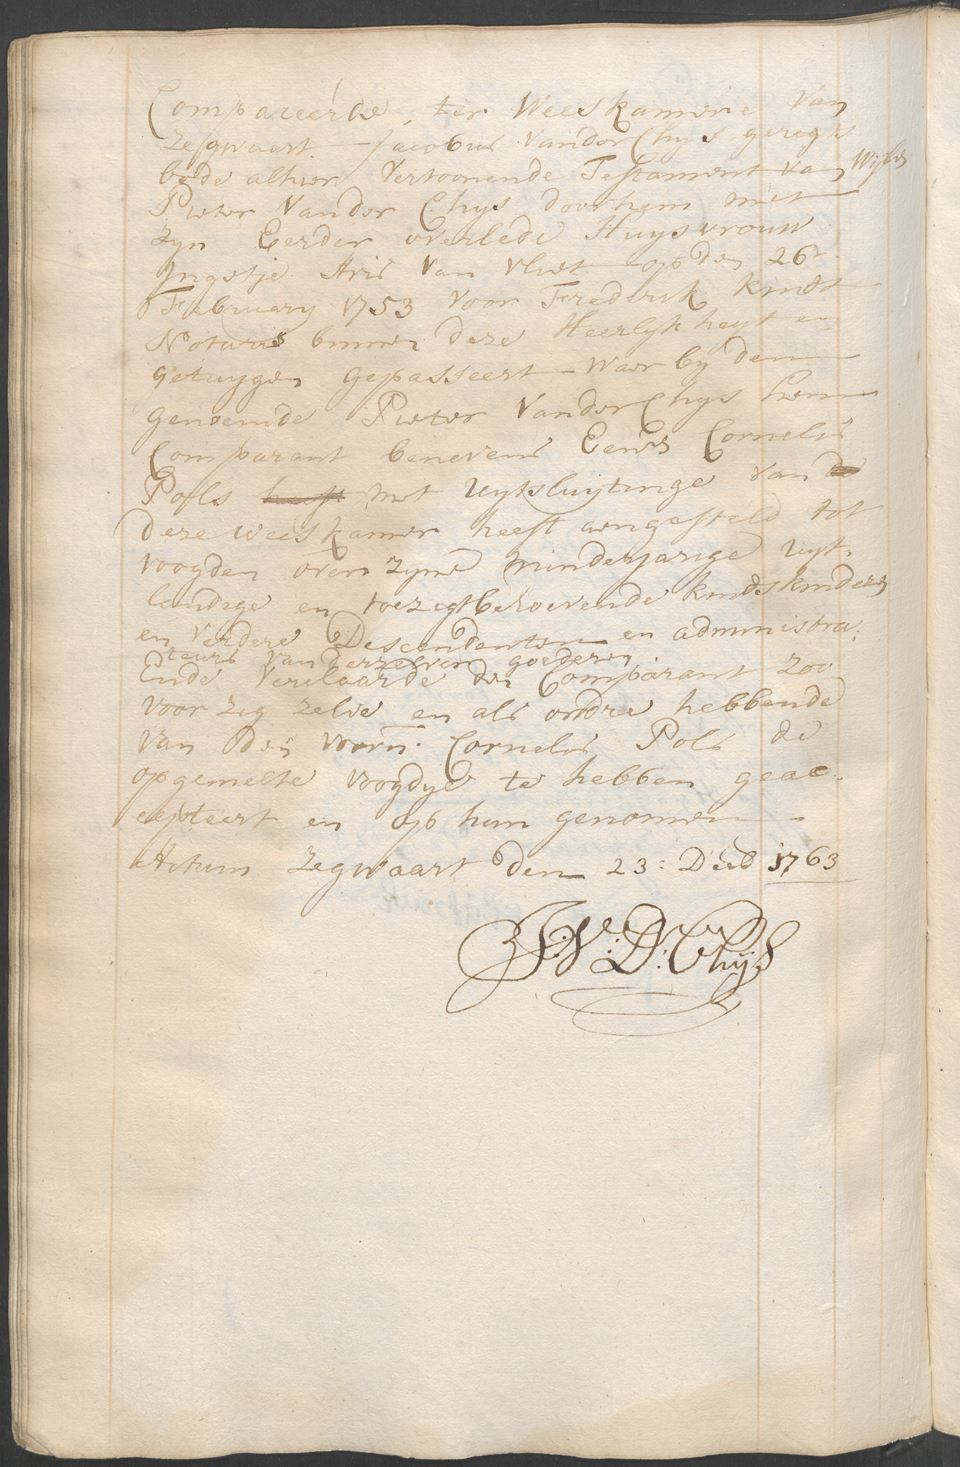 Compareerde, ter Weeskamere van
Zegwaart Jacobus Vander Chys geregts
bode alhier Vertoonende Testament van Wylen
Pieter Vander Chys door hem met
zyn Eerder overlede Huysvrouw
Ingetje Aris Van Vliet op den 26e
February 1753 voor Frederik Kindt
Notaris binnen deze Heerlykheyt en
getuygen gepasseert waer by den
genoemde Pieter Vander Chys hem
Comparant benevens Eenen Cornelis
Pols heeft met Uytsluytinge van de
deze weeskamer heeft aengesteld tot
voogden over zyne minderjarige Uyt-
landige en toezigtbehoevende kindskinderen
en Verdere Descendenten en administra-
teurs van derzelver goederen
Ende Verklaarde den Comparant zoo
voor zig zelve en als ordre hebbende
van den voorn: Cornelis Pols de
opgemelte voogdye te hebben geac-
cepteert en op hun genomen
Actum Zegwaart den 23: Decb 1763
J: V: D: Chijs